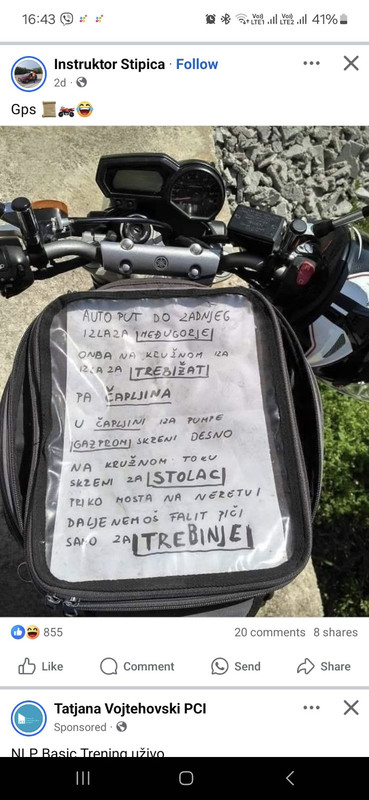 16:43
Vo)) LTE1 Vo)) LTE2 41%
Instruktor Stipica · Follow
2d ·
Gps
AUTO PUT DO ZADNJEG
IZLAZA MEĐUGORJE
ONDA NA KRUŽNOM IZA
IZLAZA TREBIŽAT
PA ČAPLJINA
U ČAPLJINI IZA PUMPE
GAZPROM SKRENI DESNO
NA KRUŽNOM TOKU
SKRENI ZA STOLAC
PRIKO MOSTA NA NERETVI
DALJE NEMOŠ FALIT PIČI
SAMO ZA TREBINJE
855
20 comments 8 shares
Like Comment Send Share
Tatjana Vojtehovski PCI
Sponsored ·
NLP Basic Trening uživo